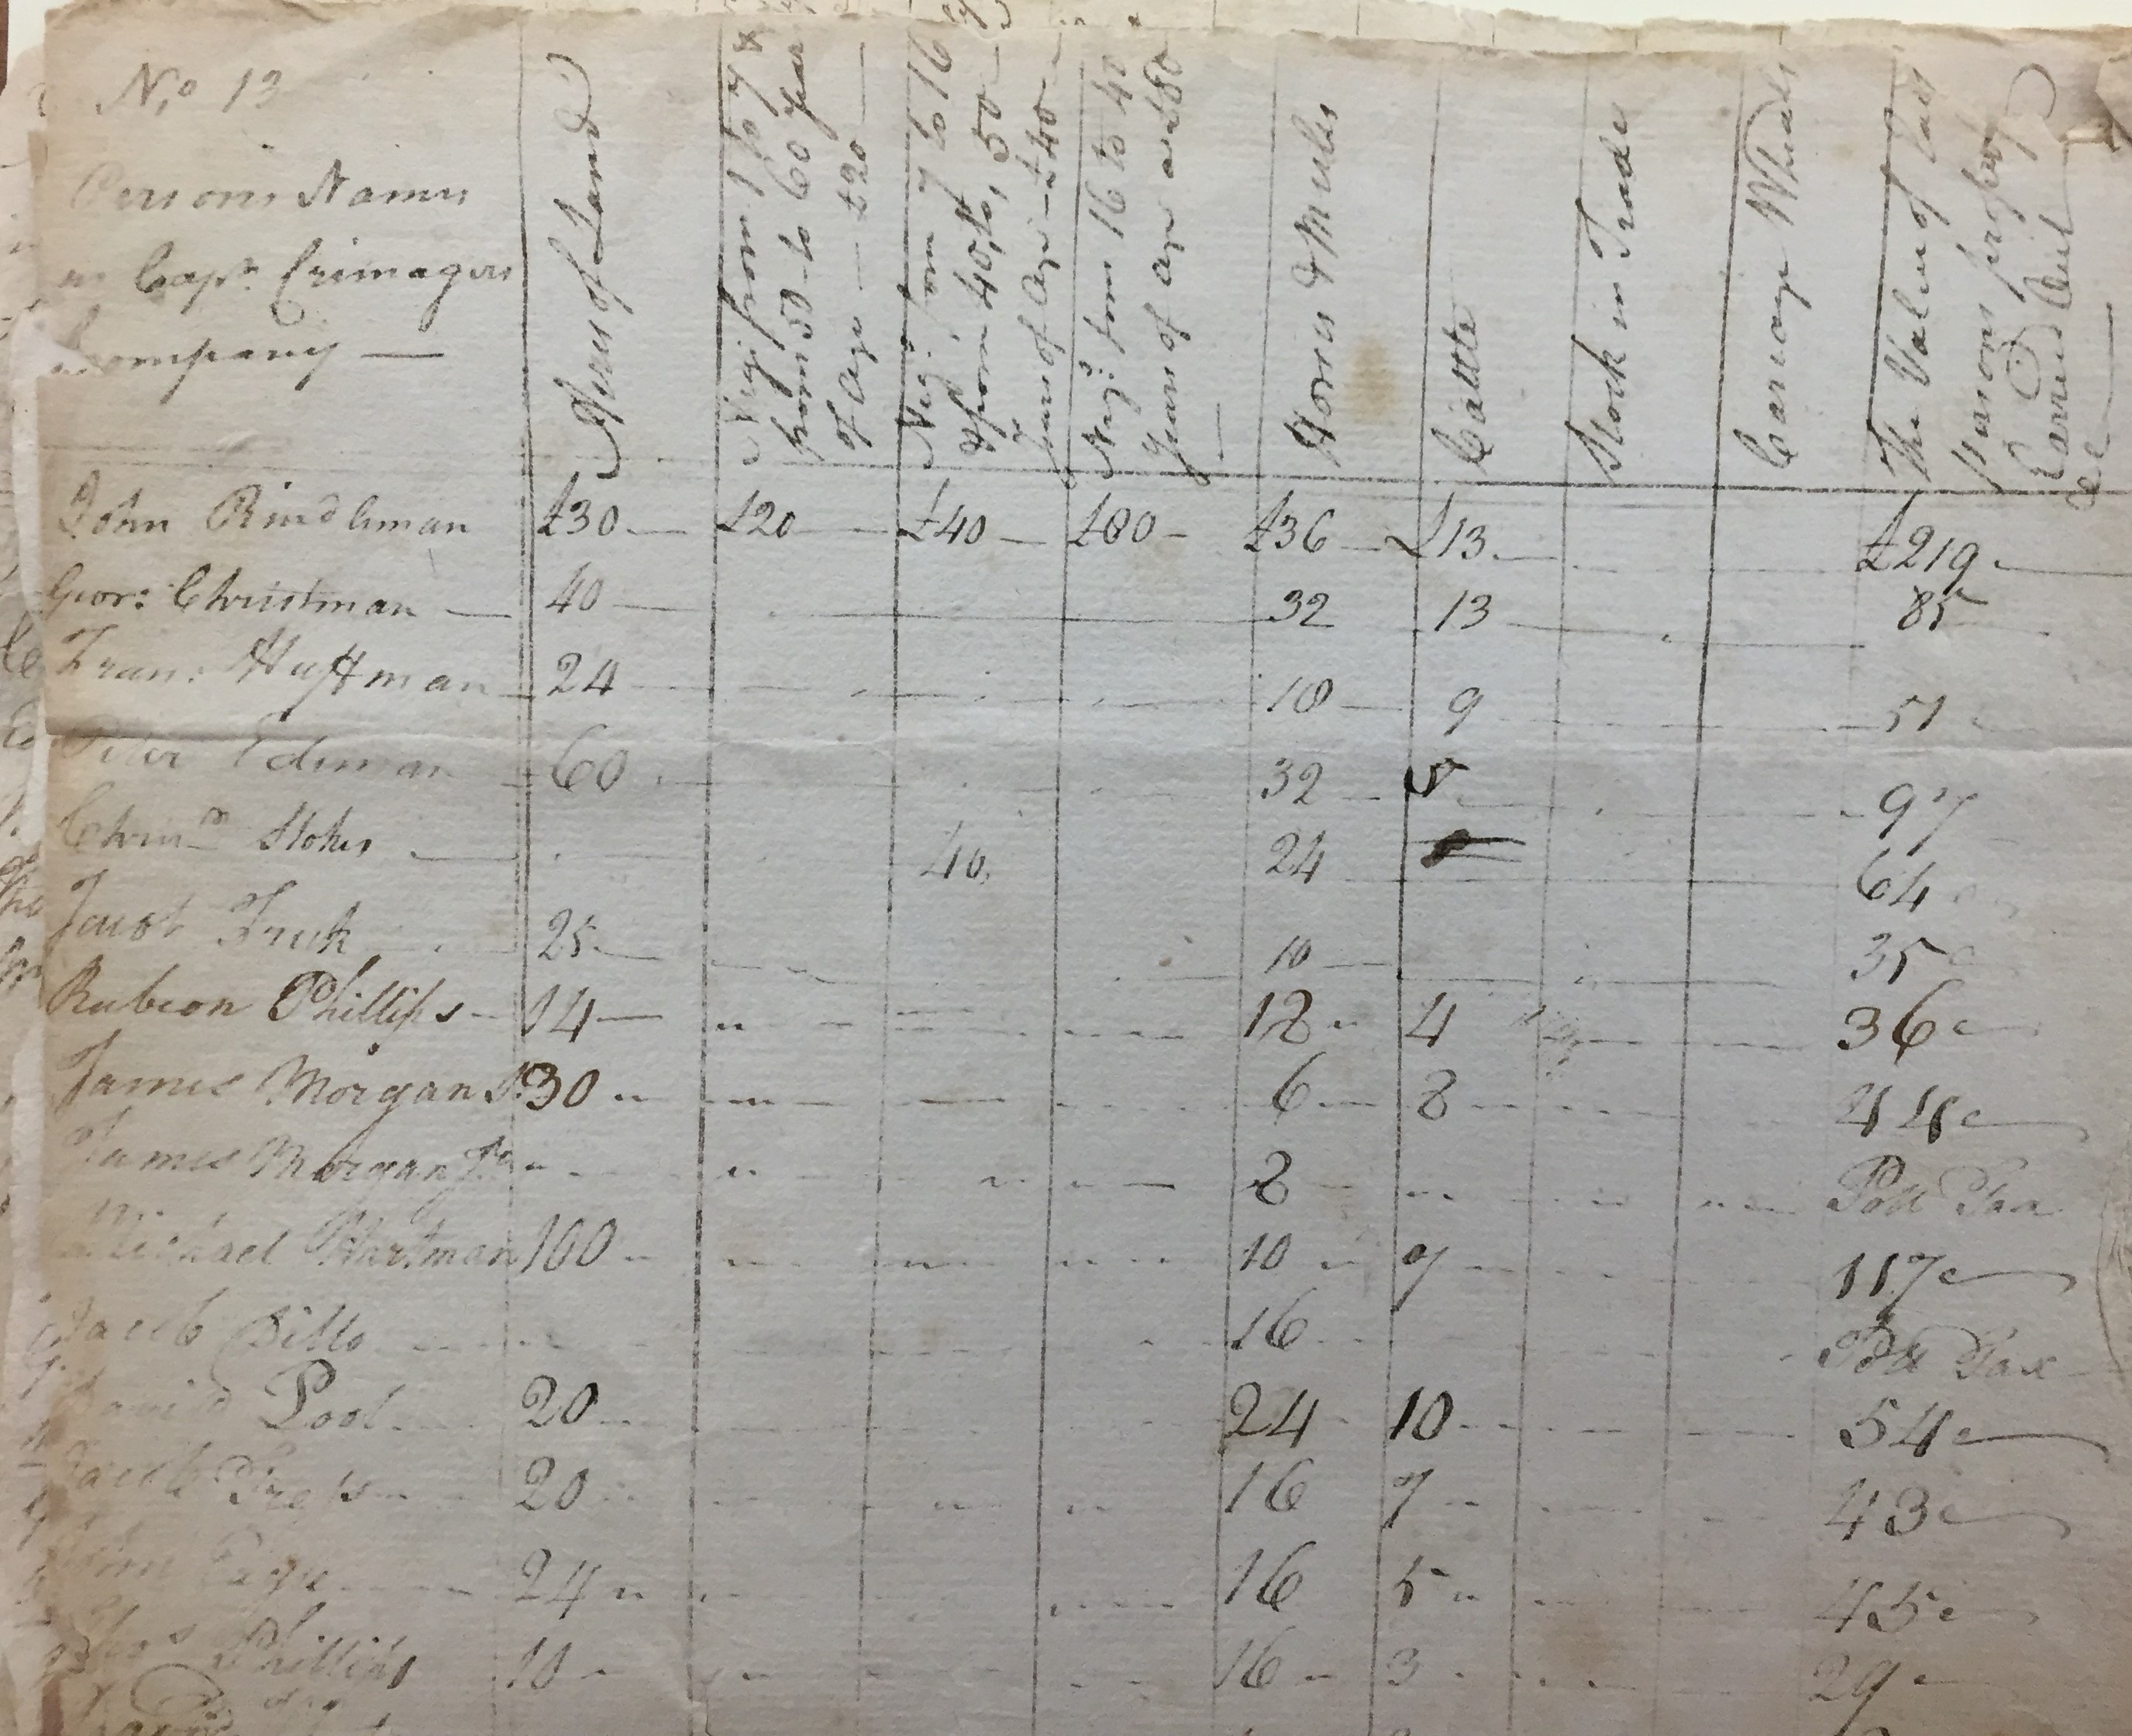 No 13
Persons Names
in Capt. Crimagers
Company —
Acres of Land
Neg: from 1 to 7 &
from 50 to 60 Year
of Age — £20
Neg: from 7 to 16
& from 40, to, 50
Years of Age — £40
Neg: from 16 to 40
Years of Age a £80
Horses & Mules
Cattle
Stock in Trade
Carriage Wheels
The Value of Each
persons property
Carried Out
John Rindleman £30 £20 £40 £80 £36 £13 £219
Geor: Christman 40 32 13 85
Fran: Huffman 24 18 9 51
Peter Edleman 60 32 5 97
Chrisn Stokes 40 24 64
Jacob Fruk 25 10 35
Rubeon Phillips 14 18 4 36
James Morgan Sr 30 6 8 44
James Morgan Jr 8 Poll Tax
Michael Hartman 100 10 7 117
Jacob Ditto 16 Poll Tax
David Pool 20 24 10 54
Jacob 20 16 7 43
John Page 24 16 5 45
Thos Phillips 10 16 3 29